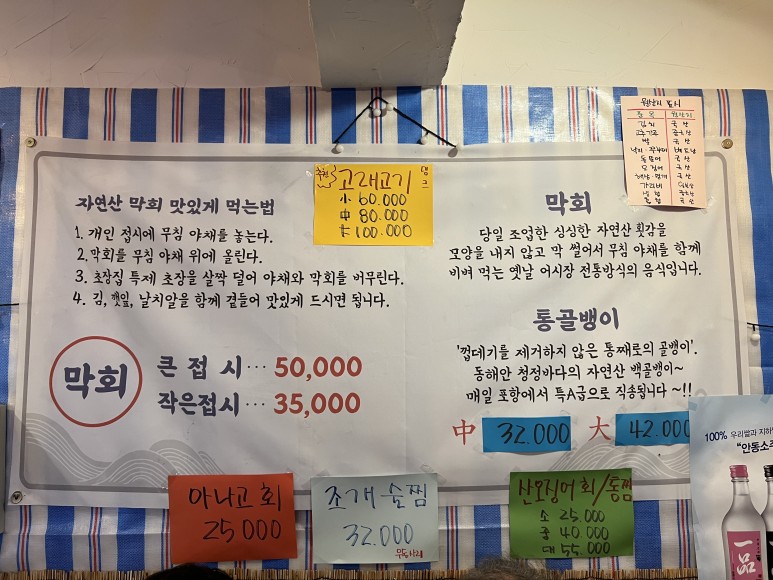 자연산 막회 맛있게 먹는법
1. 개인 접시에 무침 야채를 놓는다.
2. 막회를 무침 야채 위에 올린다.
3. 초장집 특제 초장을 살짝 덜어 야채와 막회를 버무린다.
4. 김, 깻잎, 날치알을 함께 곁들어 맛있게 드시면 됩니다.
막회
큰 접 시··· 50,000
작은접시··· 35,000
추천
고래고기
밍크
小 60.000
中 80.000
大 100.000
막회
당일 조업한 싱싱한 자연산 횟감을
모양을 내지 않고 막 썰어서 무침 야채를 함께
비벼 먹는 옛날 어시장 전통방식의 음식입니다.
통골뱅이
'껍데기를 제거하지 않은 통째로의 골뱅이'.
동해안 청정바다의 자연산 백골뱅이~
매일 포항에서 특A급으로 직송됩니다 ~!!
中 32.000 大 42.000
원산지 표시
품 목 원산지
김치 국 산
쌀 국 산
국 산
아나고 회
25000
조개술찜
32.000
우동사리
산오징어 회/통찜
소 25.000
중 40.000
대 55.000
100% 우리쌀과 지하
"안동소주
一品